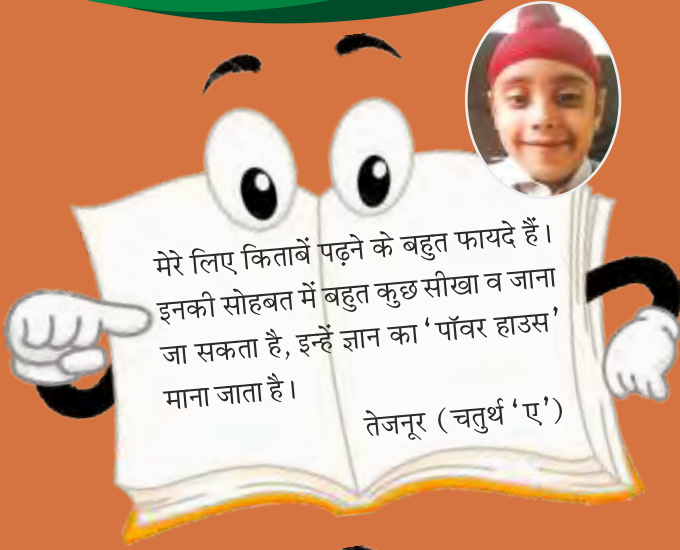 मेरे लिए किताबें पढ़ने के बहुत फायदे हैं।
इनकी सोहबत में बहुत कुछ सीखा व जाना
जा सकता है, इन्हें ज्ञान का ‘पॉवर हाउस’
माना जाता है।
तेजनूर (चतुर्थ ‘ए’)